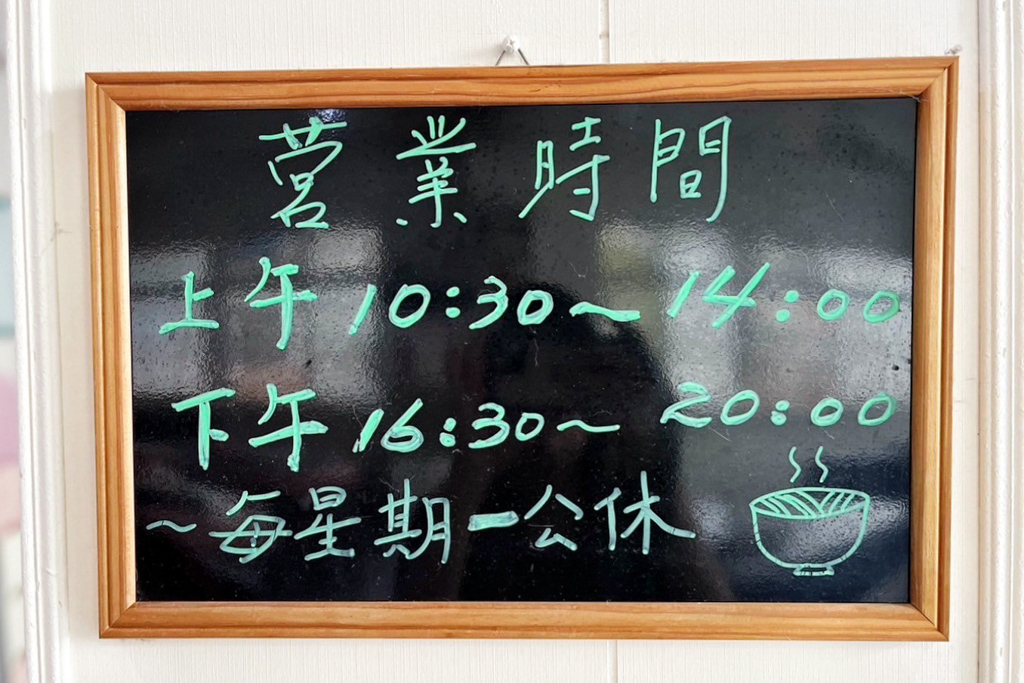 営業時間
上午10:30～14:00
下午16:30～20:00
～每星期一公休